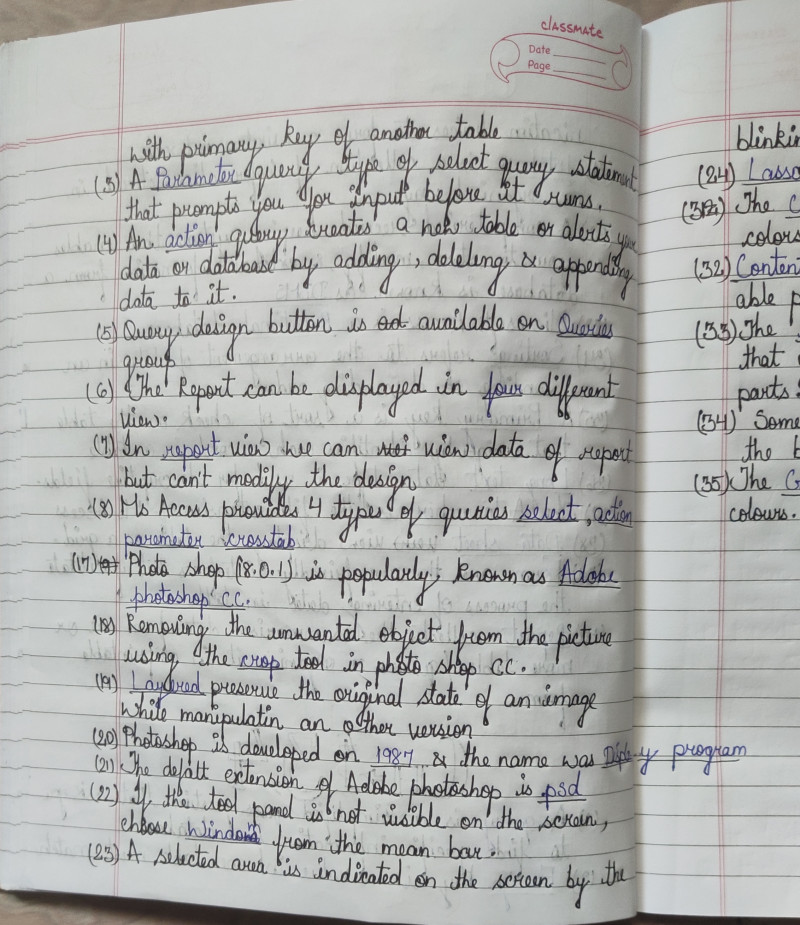 classmate
Date
Page
with primary key of another table
(3) A Parameter query type of select query statement
that prompts you for input before it runs.
(4) An action query creates a new table or alerts your
data or database by adding, deleling & appending
data to it.
(5) Query design button is available on Queries
group
(6) The Report can be displayed in four different
view.
(7) In report view we can view data of report
but can't modify the design
(8) Ms Access provides 4 types of queries select, action
parameter crosstab
(17) Photo shop (18.0.1) is popularly known as Adobe
photoshop CC.
(18) Removing the unwanted object from the picture
using the crop tool in photo shop CC.
(19) Layered preserve the original state of an image
while manipulatin an other version
(20) Photoshop is developed on 1987 & the name was Display program
(21) The defalt extension of Adobe photoshop is psd
(22) If the tool panel is not visible on the screin,
choose Window from the mean bar.
(23) A selected area is indicated on the screen by the
blinkin
(24) Lasso
The C
colors
(32) Conten
able p
(33) The
that
parts
(34) Some
the b
(35) The G
colours.